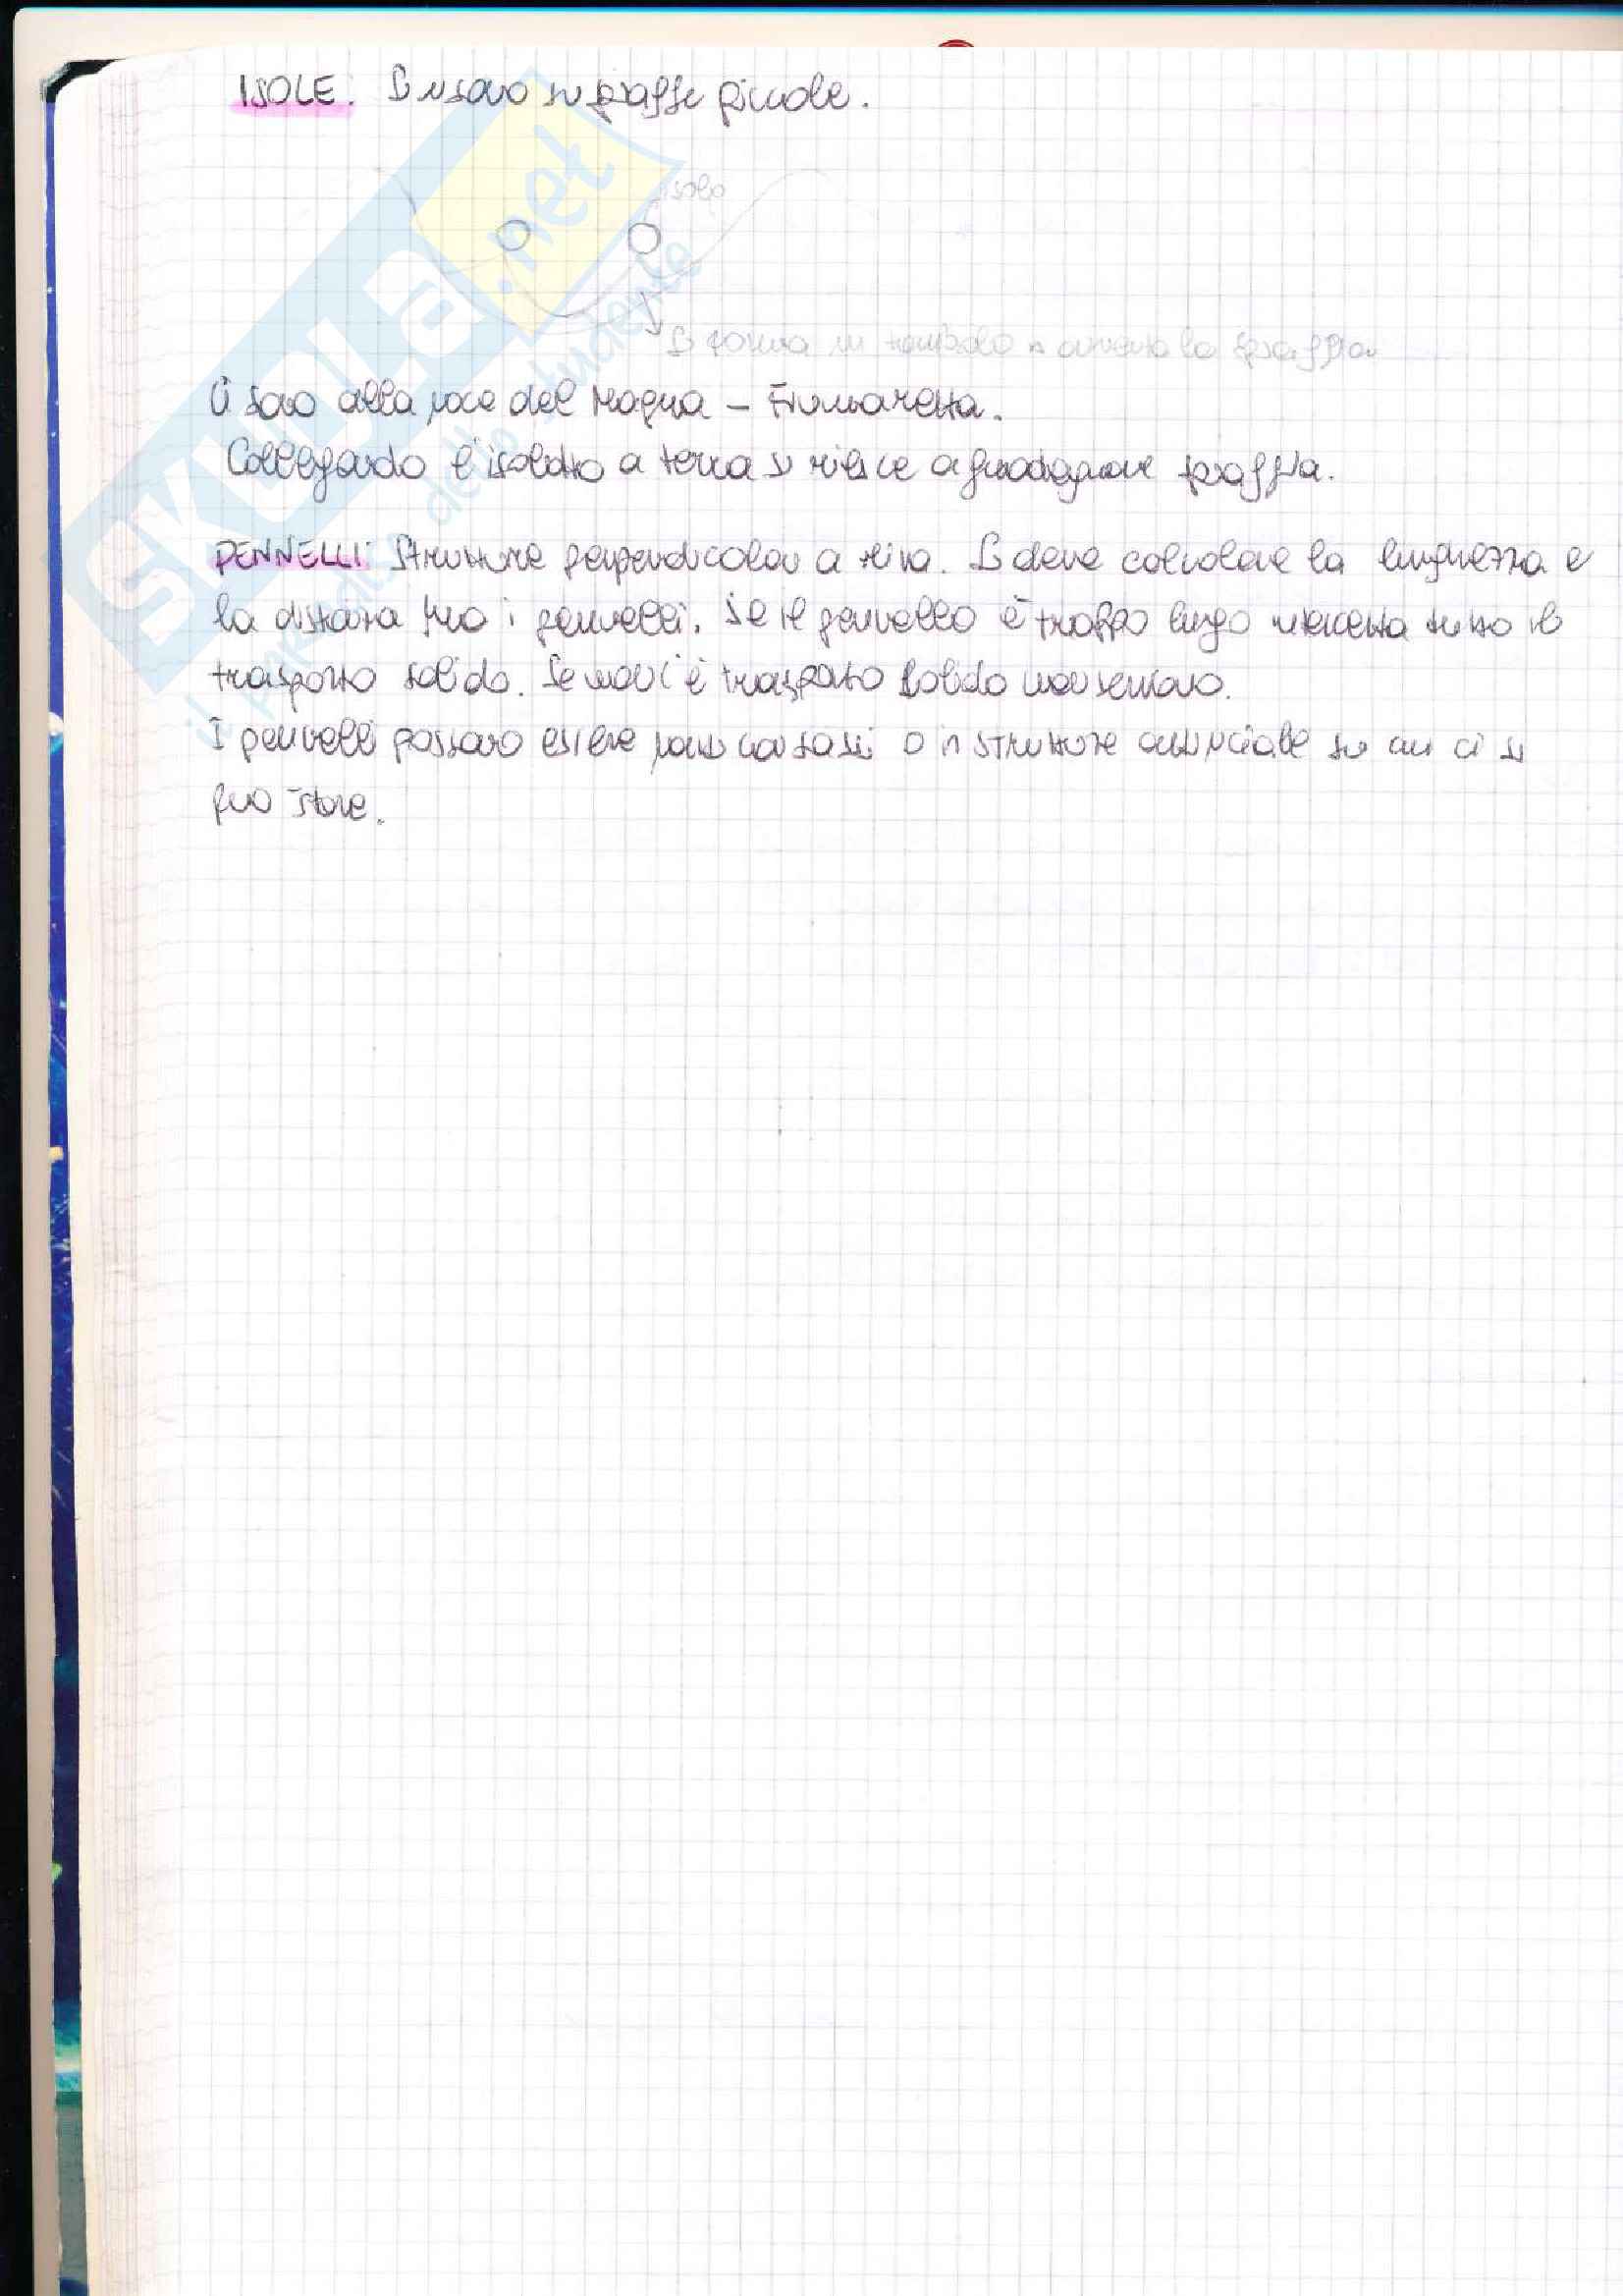 ISOLE: Si usano su spiagge piccole.
isola
Si forma un tombolo → aumenta la spiaggia
Ci sono alla foce del Magra - Fiumaretta.
Collegando l'isolotto a terra si riesce a guadagnare spiaggia.
PENNELLI: Strutture perpendicolari a riva. Si deve calcolare la lunghezza e
la distanza fra i pennelli. Se il pennello è troppo lungo intercetta tutto il
trasporto solido. Se non c'è trasporto solido non servono.
I pennelli possono essere fatti con sassi o in strutture artificiale su cui ci si
può stare.
SKUOLA.net
il portale dello studente